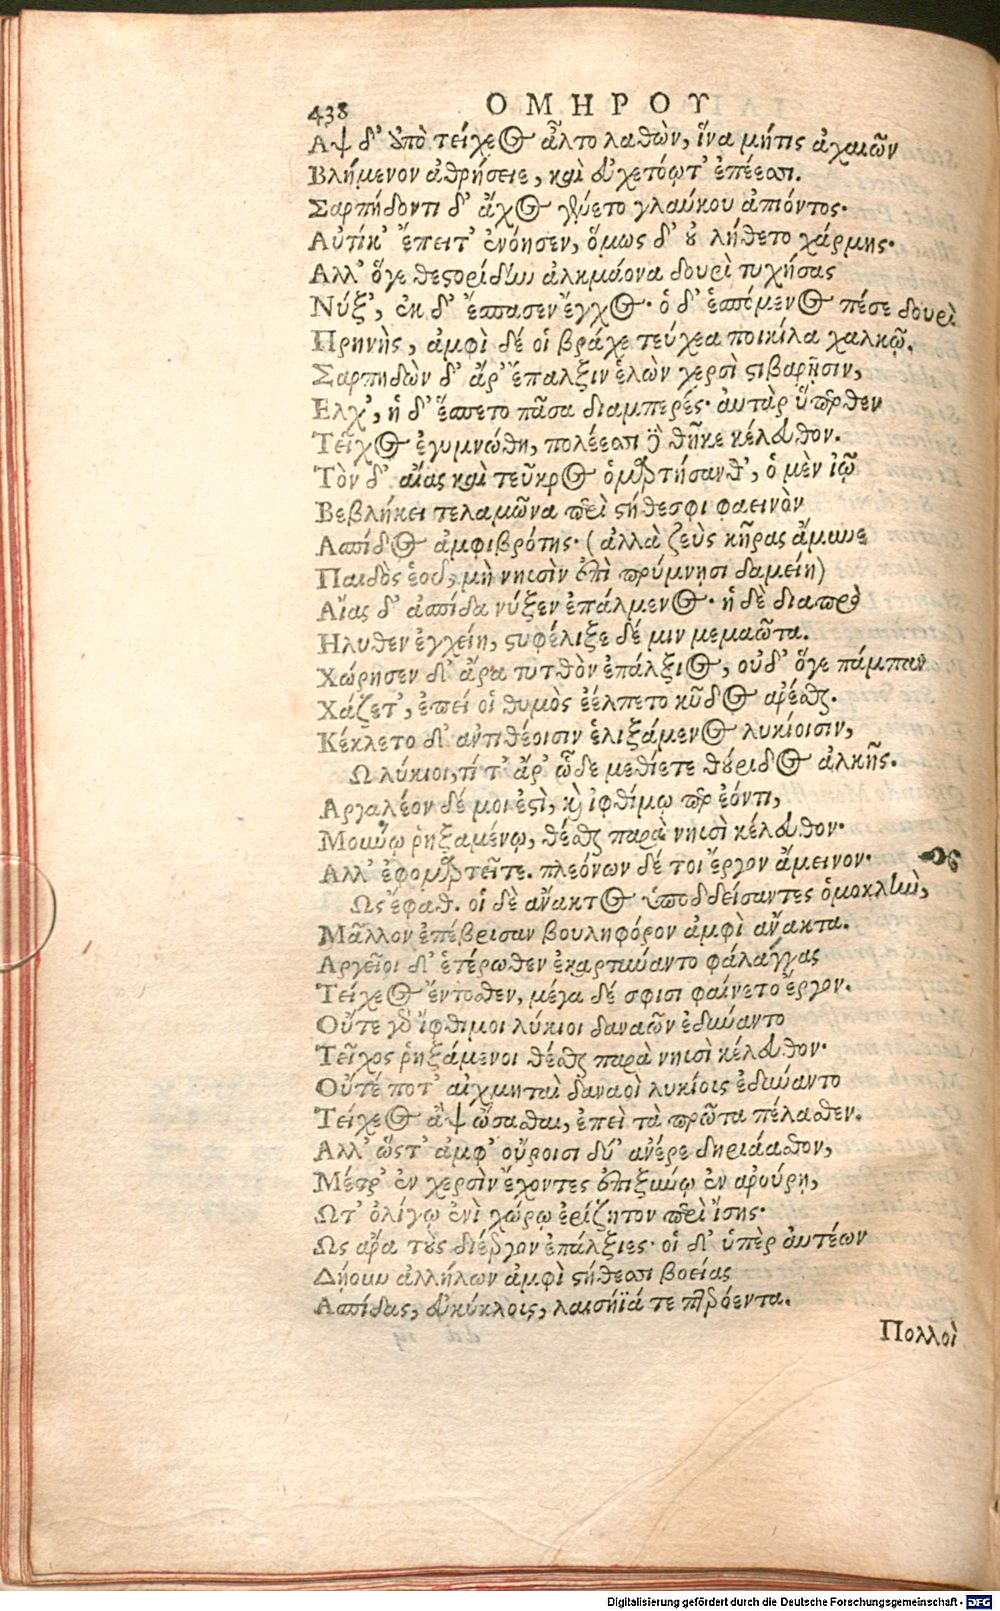 438 ΟΜΗΡΟΥ
Αψ δ' ἀπὸ τείχεος ἆλτο λαθὼν, ἵνα μήτις ἀχαιῶν
Βλήμενον ἀθρήσειε, καὶ εὐχετόῳτ' ἐπέεσσι.
Σαρπήδοντι δ' ἄχος γένετο γλαύκου ἀπιόντος·
Αὐτίκ' ἔπειτ' ἐνόησεν, ὅμως δ' οὐ λήθετο χάρμης·
Αλλ' ὅγε θεστορίδην ἀλκμάονα δουρὶ τυχήσας
Νύξ', ἐκ δ' ἔσπασεν ἔγχος· ὁ δ' ἑσπόμενος πέσε δουρὶ
Πρηνὴς, ἀμφὶ δέ οἱ βράχε τεύχεα ποικίλα χαλκῷ.
Σαρπηδὼν δ' ἄρ' ἔπαλξιν ἑλὼν χερσὶ στιβαρῇσιν,
Ελχ', ἡ δ' ἕσπετο πᾶσα διαμπερές· αὐτὰρ ὕπερθεν
Τεῖχος ἐγυμνώθη, πολέεσσι δὲ θῆκε κέλευθον.
Τὸν δ' αἴας καὶ τεῦκρος ὁμαρτήσανθ', ὁ μὲν ἰῷ
Βεβλήκει τελαμῶνα περὶ στήθεσφι φαεινὸν
Ασπίδος ἀμφιβρότης· (ἀλλὰ ζεὺς κῆρας ἄμυνε
Παιδὸς ἑοῦ, μὴ νηυσὶν ἐπὶ πρύμνησι δαμείη)
Αἴας δ' ἀσπίδα νύξεν ἐπάλμενος· ἡ δὲ διαπρὸ
Ηλυθεν ἐγχείη, στυφέλιξε δέ μιν μεμαῶτα.
Χώρησεν δ' ἄρα τυτθὸν ἐπάλξιος, οὐδ' ὅγε πάμπαν
Χάζετ', ἐπεί οἱ θυμὸς ἐέλπετο κῦδος ἀρέσθαι.
Κέκλετο δ' ἀντιθέοισιν ἑλιξάμενος λυκίοισιν,
Ω λύκιοι, τί τ' ἄρ' ὧδε μεθίετε θούριδος ἀλκῆς.
Αργαλέον δέ μοι ἐστὶ, καὶ ἰφθίμῳ περ ἐόντι,
Μούνῳ ῥηξαμένῳ, θέσθαι παρὰ νηυσὶ κέλευθον·
Αλλ' ἐφομαρτεῖτε. πλεόνων δέ τοι ἔργον ἄμεινον·
Ως ἔφαθ. οἱ δὲ ἄνακτος ὑποδδείσαντες ὁμοκλὴν,
Μᾶλλον ἐπέβρισαν βουληφόρον ἀμφὶ ἄνακτα.
Αργεῖοι δ' ἑτέρωθεν ἐκαρτύναντο φάλαγγας
Τείχεος ἔντοσθεν, μέγα δέ σφισι φαίνετο ἔργον.
Οὔτε γὰρ ἴφθιμοι λύκιοι δαναῶν ἐδύναντο
Τεῖχος ῥηξάμενοι θέσθαι παρὰ νηυσὶ κέλευθον·
Οὔτέ ποτ' αἰχμηταὶ δαναοὶ λυκίοις ἐδύναντο
Τείχεος ἂψ ὤσασθαι, ἐπεὶ τὰ πρῶτα πέλασθεν.
Αλλ' ὥστ' ἀμφ' οὔροισι δύ' ἀνέρε δηριάασθον,
Μέτρ' ἐν χερσὶν ἔχοντες ἐπιξύνῳ ἐν ἀρούρῃ,
Ωτ' ὀλίγῳ ἐνὶ χώρῳ ἐρίζητον περὶ ἴσης·
Ως ἄρα τοὺς διέεργον ἐπάλξιες· οἱ δ' ὑπὲρ αὐτέων
Δήουν ἀλλήλων ἀμφὶ στήθεσσι βοείας
Ασπίδας, εὐκύκλοις, λαισήϊά τε πτερόεντα.
Πολλοὶ
Digitalisierung gefördert durch die Deutsche Forschungsgemeinschaft - DFG